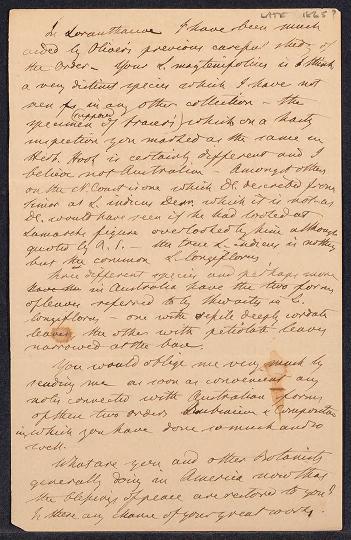 LATE 1865?
In Loranthaceae I have been much
aided by Oliver's previous careful study of
the order – Your L. maytenifolius is I think
a very distinct species which I have not
seen in any other collection – the
specimen (supposed) of Fraser's) which on a hasty
inspection you marked as the same in
Herb. Hook is certainly different and I
believe not Australian – Amongst others
on the N. Coast is one which DC described from
Timor as L. indicus Desr. which it is not as
DC. would have seen if he had looked at
Lamarck's figure overlooked by him although
quoted by – the true L. indicus is nothing
but the common L. longiflorus
three different species and perhaps more
in Australia have the two forms
of leaves referred to by Thwaites in L.
longiflorus – one with sessile deeply cordate
leaves the other with petiolate leaves
narrowed at the base.
You would oblige me very much by
sending me as soon as convenient any
notes connected with Australian forms
of these two orders Rubiaceae & Compositae
in which you have done so much and so
well.
What are you and other Botanists
generally doing in America now that
the blessings of peace are restored to you?
Is there any chance of your great work